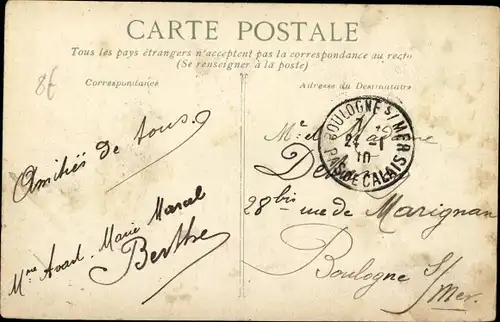 CARTE POSTALE
Tous les pays étrangers n'acceptent pas la correspondance au recto
(Se renseigner à la poste)
Correspondance
Adresse du Destinataire
8f
Amitiés de tous.
Mme Avart. Marie Marcel
Berthe
BOULOGNE S/MER
24 -1
10
PAS DE CALAIS
Mr et Madame
28 bis rue de Marignan
Boulogne s/mer.